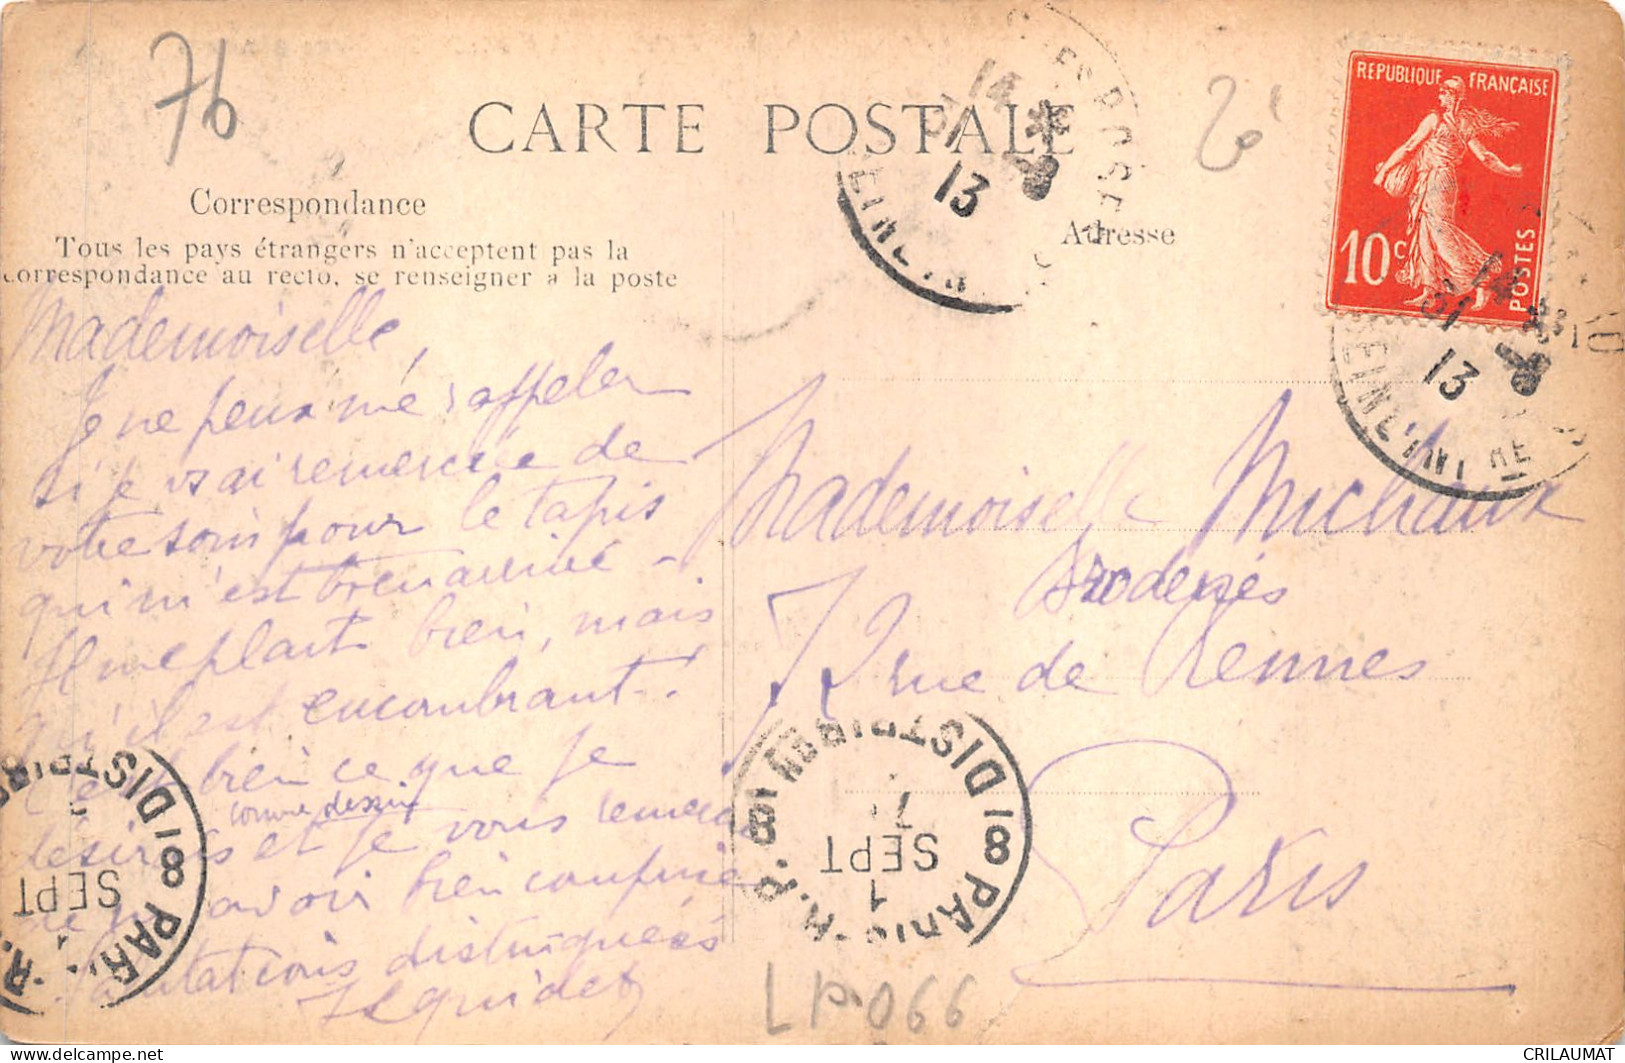 76
CARTE POSTALE
Correspondance
Tous les pays étrangers n'acceptent pas la
correspondance au recto, se renseigner à la poste
Adresse
REPUBLIQUE FRANÇAISE
10c POSTES
14
31
13
SEINE INFRE
14
31
13
SEINE INFRE
Mademoiselle,
Je ne peux me rappeler
si je vs ai remerciée de
votre soin pour le tapis
qui m'est bien arrivé -
Il me plait bien, mais
qu'il est encombrant!
C'est bien ce que je
comme dessin
désirais et je vous remercie
de m'avoir bien
Salutations distinguées
Mademoiselle Michaux
72 rue de Rennes
Paris
PARIS R.P. DISTRIBUTION
7
SEPT
1
8
PARIS R.P. DISTRIB
SEPT
1
8
LP 066
CRILAUMAT